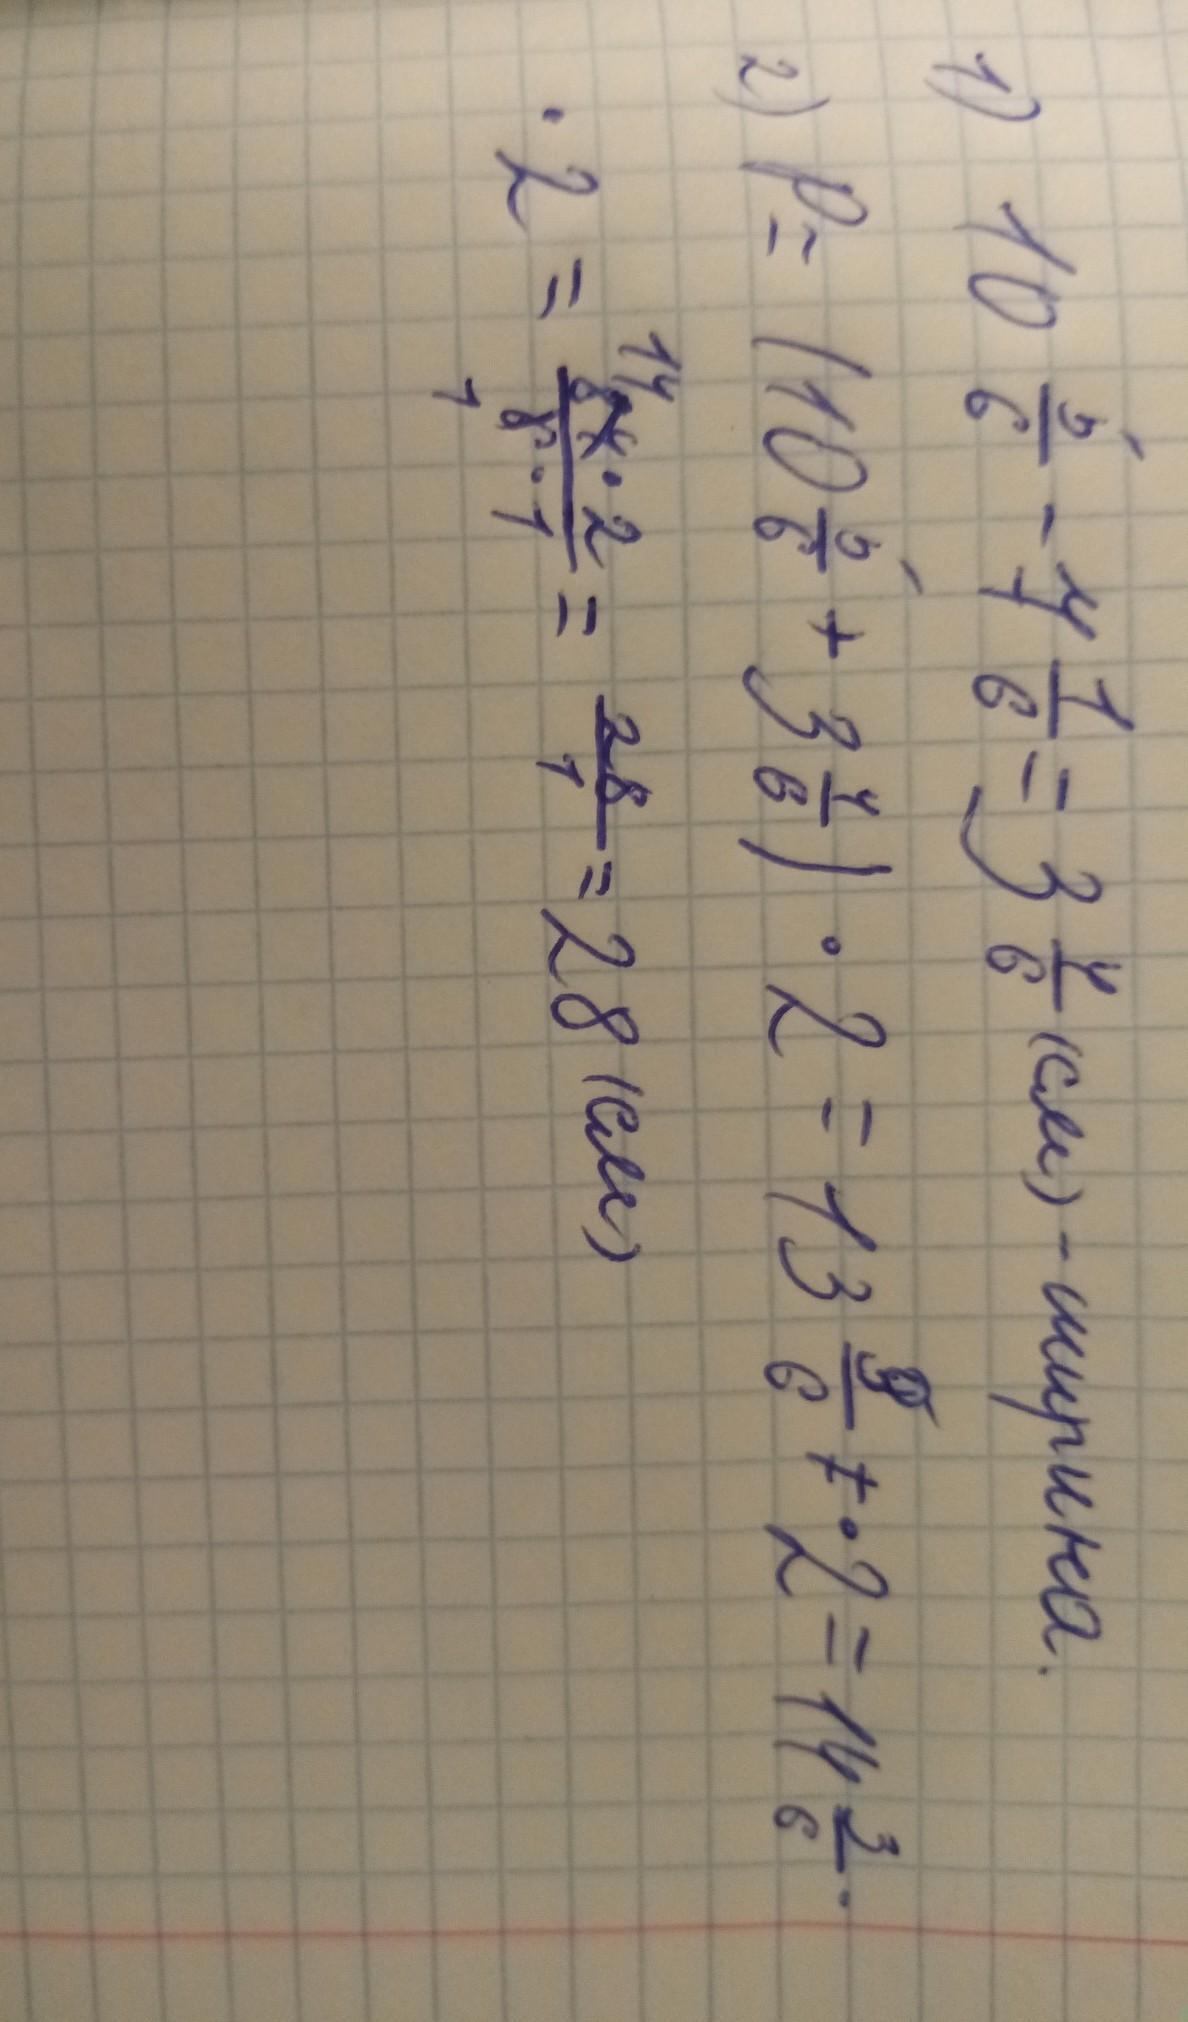 1) 10 5/6 - 7 1/6 = 3 4/6 (см) - ширина.
2) P = (10 5/6 + 3 4/6) · 2 = 13 9/6 · 2 = 14 3/6 ·
· 2 = 84 · 2 / 6 · 1 = 28/1 = 28 (см)